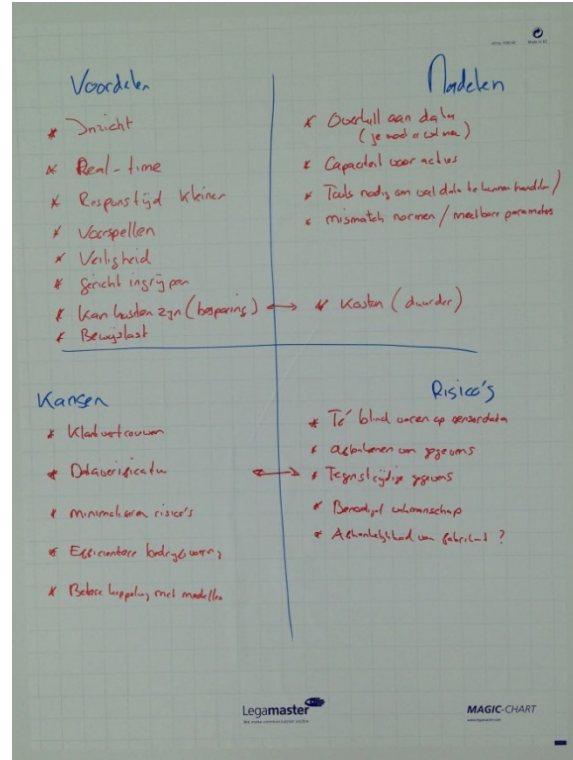 Voordelen
* Inzicht
* Real-time
* Responstijd kleiner
* Voorspellen
* Veiligheid
* Gericht ingrijpen
* Kan kosten zijn (besparing)
* Bewijslast
Nadelen
* Overkill aan data
* Capaciteit voor acties
* Tools nodig om veel data te kunnen handelen/
* mismatch normen / meetbare parameters
* Kosten (duurder)
Kansen
* Klantvertrouwen
* Dataverificatie
* minimaliseren risico's
* Efficientere bedrijfsvoering
* Betere koppeling met modellen
Risico's
* Te blind varen op sensordata
* van gegevens
* Tegenstrijdige gegevens
* Benodigd vakmanschap
* Afhankelijkheid van fabrikant?
Legamaster
MAGIC-CHART